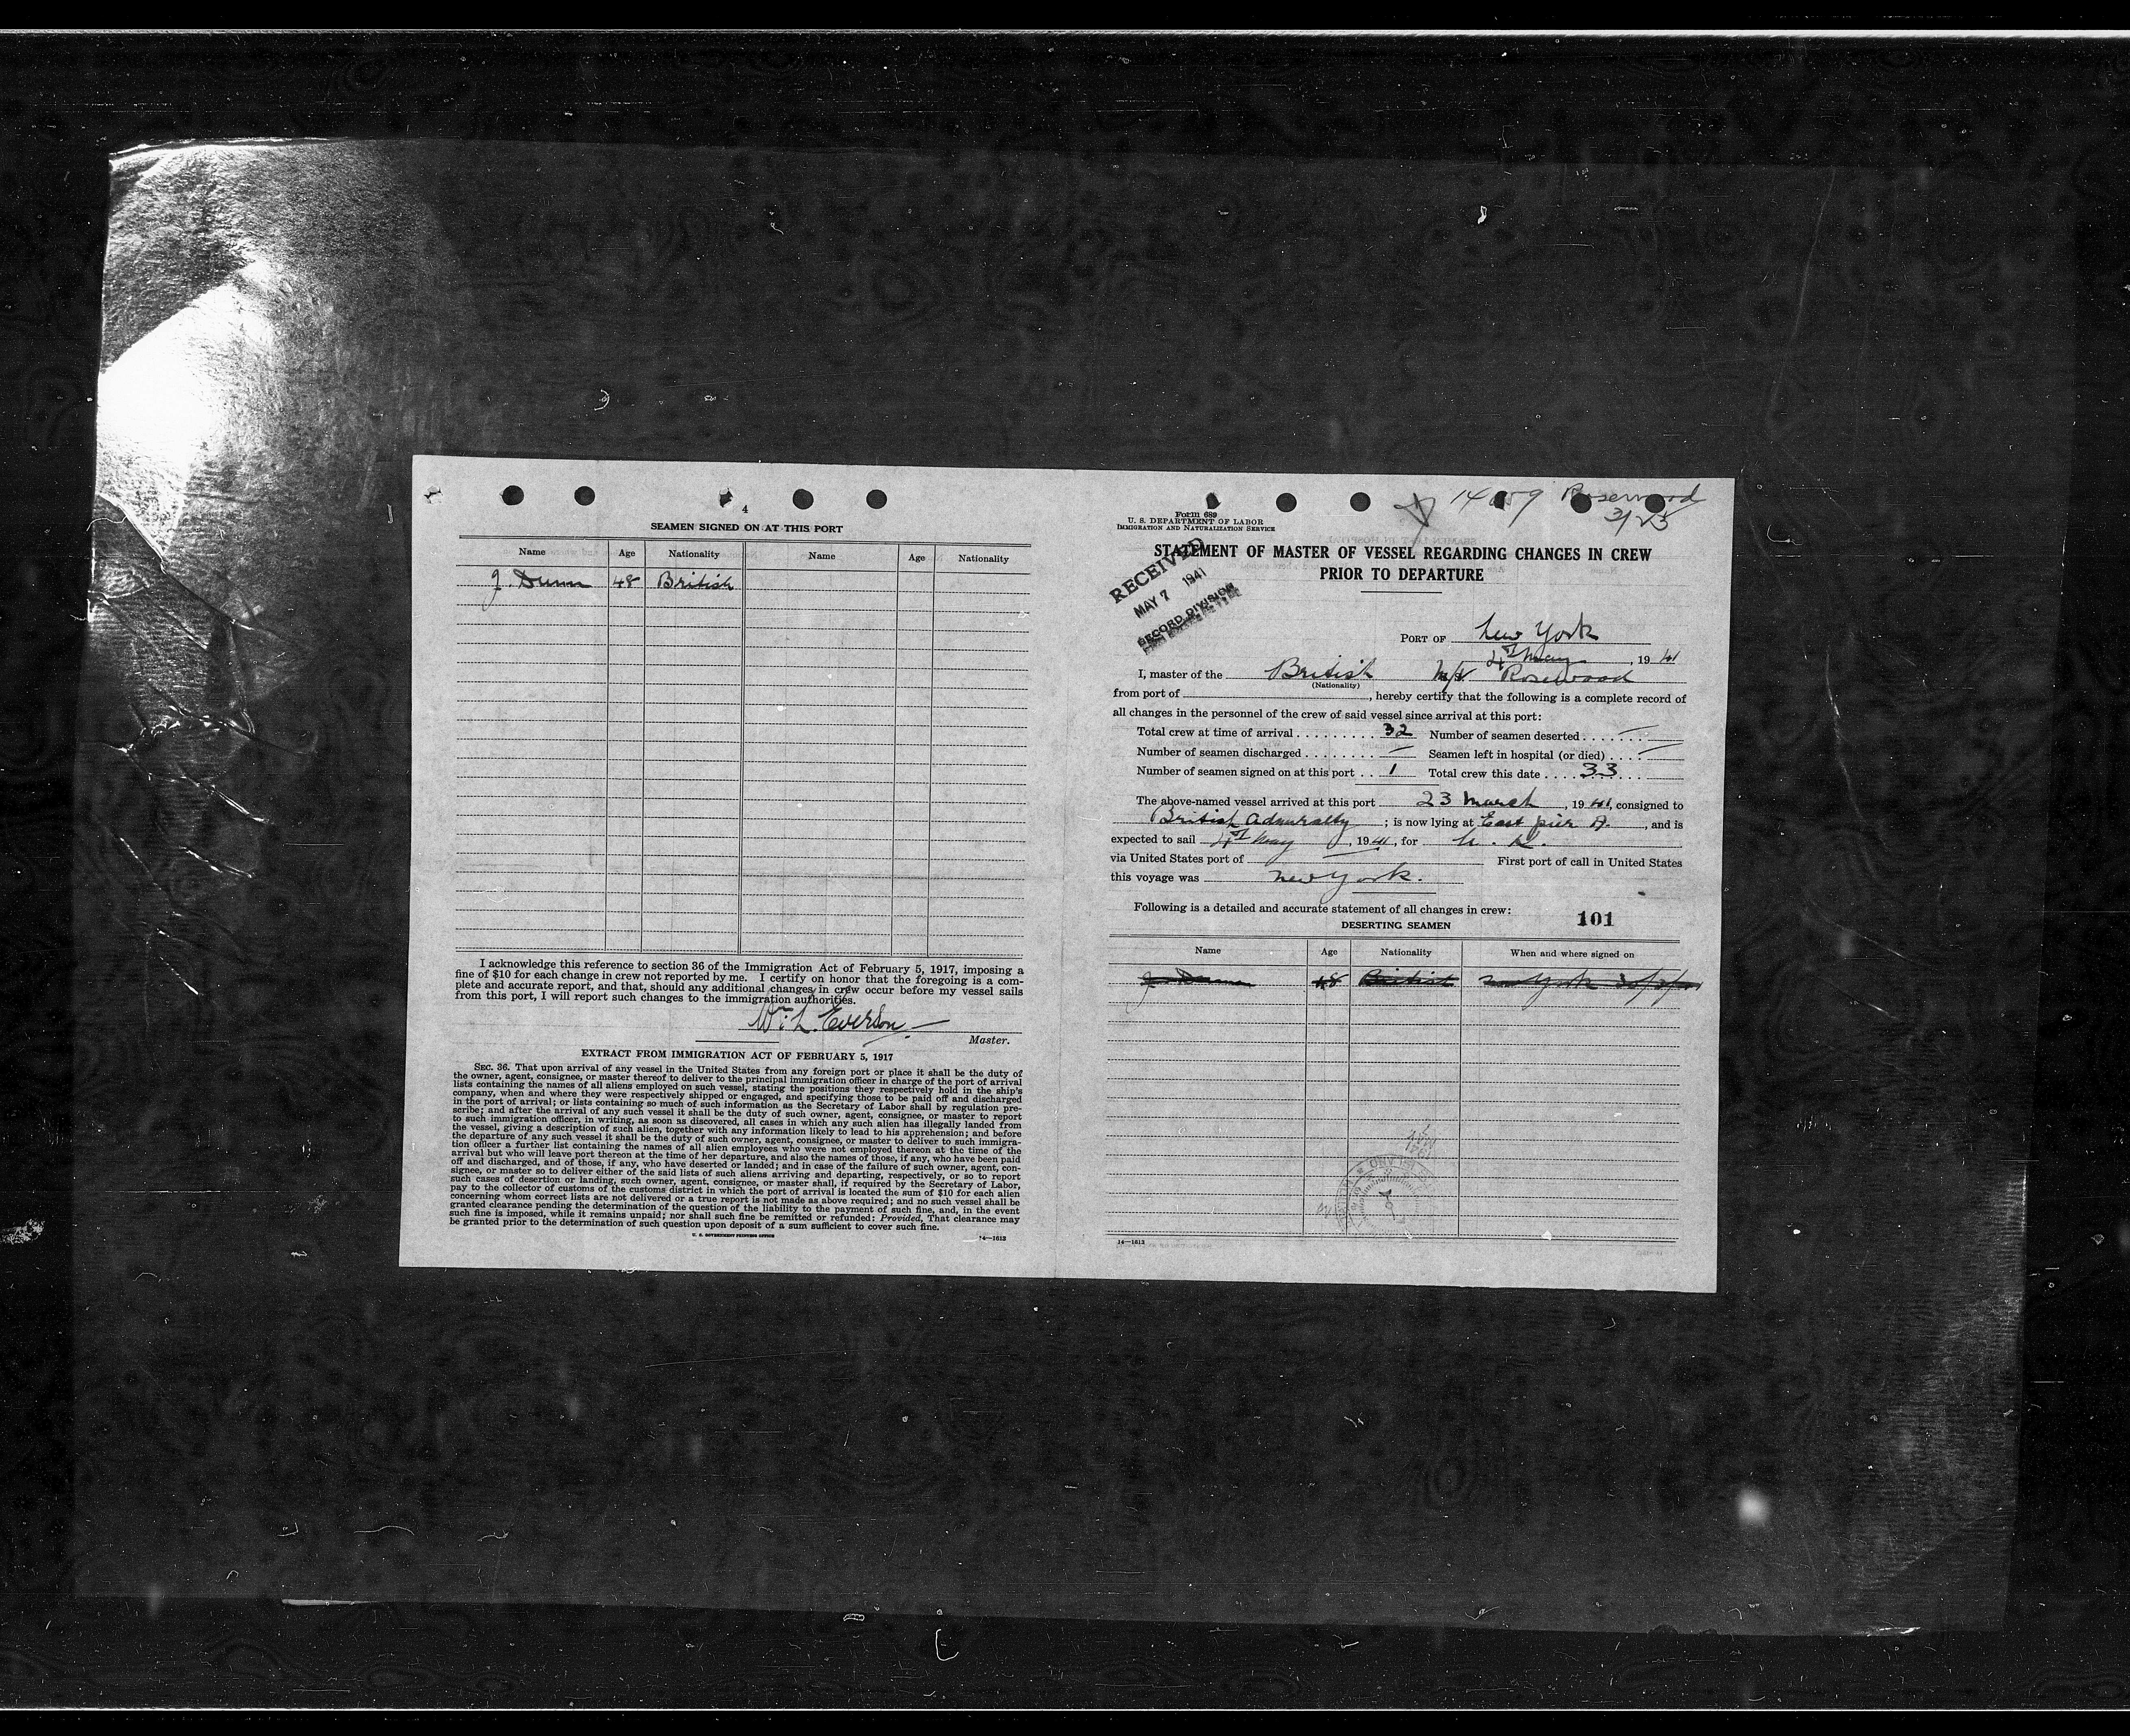 4
SEAMEN SIGNED ON AT THIS PORT
Name Age Nationality Name Age Nationality
J. Dunn 48 British
I acknowledge this reference to section 36 of the Immigration Act of February 5, 1917, imposing a
fine of $10 for each change in crew not reported by me. I certify on honor that the foregoing is a com-
plete and accurate report, and that, should any additional changes in crew occur before my vessel sails
from this port, I will report such changes to the immigration authorities.
Wm. L. Everson
Master.
EXTRACT FROM IMMIGRATION ACT OF FEBRUARY 5, 1917
SEC. 36. That upon arrival of any vessel in the United States from any foreign port or place it shall be the duty of
the owner, agent, consignee, or master thereof to deliver to the principal immigration officer in charge of the port of arrival
lists containing the names of all aliens employed on such vessel, stating the positions they respectively hold in the ship's
company, when and where they were respectively shipped or engaged, and specifying those to be paid off and discharged
in the port of arrival; or lists containing so much of such information as the Secretary of Labor shall by regulation pre-
scribe; and after the arrival of any such vessel it shall be the duty of such owner, agent, consignee, or master to report
to such immigration officer, in writing, as soon as discovered, all cases in which any such alien has illegally landed from
the vessel, giving a description of such alien, together with any information likely to lead to his apprehension; and before
the departure of any such vessel it shall be the duty of such owner, agent, consignee, or master to deliver to such immigra-
tion officer a further list containing the names of all alien employees who were not employed thereon at the time of the
arrival but who will leave port thereon at the time of her departure, and also the names of those, if any, who have been paid
off and discharged, and of those, if any, who have deserted or landed; and in case of the failure of such owner, agent, con-
signee, or master so to deliver either of the said lists of such aliens arriving and departing, respectively, or so to report
such cases of desertion or landing, such owner, agent, consignee, or master shall, if required by the Secretary of Labor,
pay to the collector of customs of the customs district in which the port of arrival is located the sum of $10 for each alien
concerning whom correct lists are not delivered or a true report is not made as above required; and no such vessel shall be
granted clearance pending the determination of the question of the liability to the payment of such fine, and, in the event
such fine is imposed, while it remains unpaid; nor shall such fine be remitted or refunded: Provided, That clearance may
be granted prior to the determination of such question upon deposit of a sum sufficient to cover such fine.
U. S. GOVERNMENT PRINTING OFFICE
14—1613
Rosewood
3/23
Form 689
U. S. DEPARTMENT OF LABOR
IMMIGRATION AND NATURALIZATION SERVICE
STATEMENT OF MASTER OF VESSEL REGARDING CHANGES IN CREW
PRIOR TO DEPARTURE
RECEIVED
MAY 7 1941
RECORD DIVISION
PORT OF New York
4th May, 1941
I, master of the British M/V Rosewood
(Nationality)
from port of , hereby certify that the following is a complete record of
all changes in the personnel of the crew of said vessel since arrival at this port:
Total crew at time of arrival . . . . . . . . . 32 Number of seamen deserted . . . . —
Number of seamen discharged . . . . . . . . — Seamen left in hospital (or died) . . . . —
Number of seamen signed on at this port . . 1 Total crew this date . . . . 33
The above-named vessel arrived at this port 23 March, 1941, consigned to
British Admiralty ; is now lying at East pier A., and is
expected to sail 4th May, 1941, for U. K.
via United States port of — First port of call in United States
this voyage was New York.
Following is a detailed and accurate statement of all changes in crew:
101
DESERTING SEAMEN
Name Age Nationality When and where signed on
J. Dunn 48 British New York
14—1613